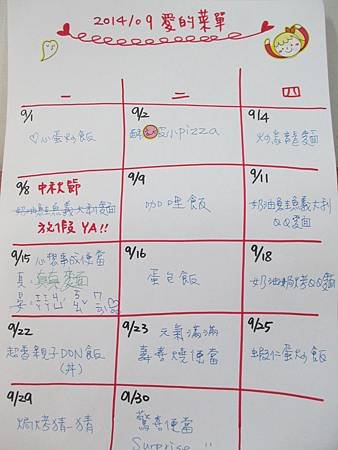 2014/09 愛的菜單
一
二
四
9/1
♡心蛋炒飯
9/2
小pizza
9/4
炒烏龍麵
9/8 中秋節
奶油鮭魚義大利麵
放假 YA!!
9/9
咖哩飯
9/11
奶油鮭魚義大利
QQ麵
9/15 心想事成便當
9/16
蛋包飯
9/18
奶油焗烤QQ麵
9/22
超香親子DON飯
(丼)
9/23 元氣滿滿
壽喜燒便當
9/25
蝦仁蛋炒飯
9/29
焗烤猜一猜
9/30
驚喜便當
Surprise !!